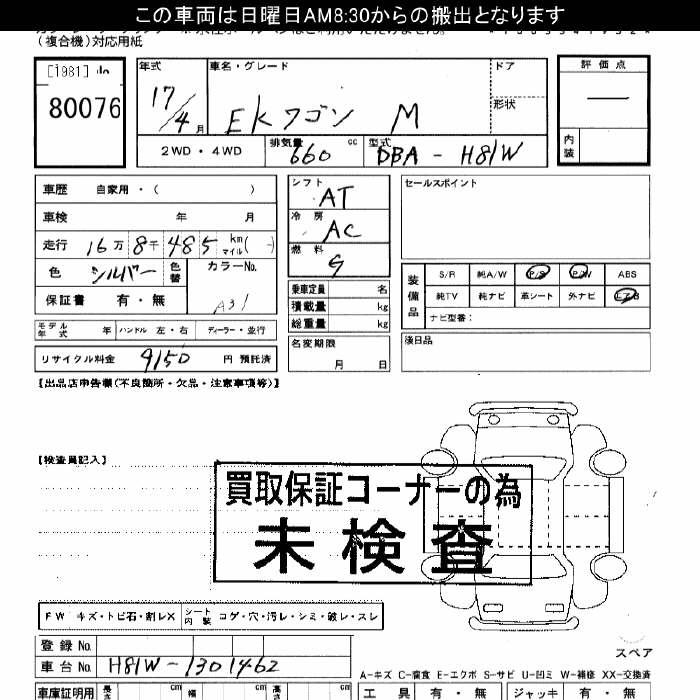 この車両は日曜日AM8:30からの搬出となります
(複合機)対応用紙
[1981]
80076
年式 17/4月
車名・グレード EKワゴン M
ドア
形状
評価点
内装
2WD・4WD
排気量 660 cc
型式 DBA-H81W
車歴 自家用・( )
車検 年 月
走行 16万8千485 km マイル( )
色 シルバー 色替 カラーNo. A31
保証書 有・無
モデル年式 年 ハンドル 左・右 ディーラー・並行
リサイクル料金 9150 円 預託済
シフト AT
冷房 AC
燃料 G
乗車定員 名
積載量 kg
総重量 kg
名変期限 月 日
セールスポイント
装備品
S/R 純A/W P/S P/W ABS
純TV 純ナビ 革シート 外ナビ エアB
ナビ型番:
後日品
【出品店申告欄(不良箇所・欠品・注意事項等)】
【検査員記入】
買取保証コーナーの為
未検査
FW キズ・トビ石・割レX シート内装 コゲ・穴・汚レ・シミ・破レ・スレ
登録No.
車台No. H81W-1301462
スペア
A-キズ C-腐食 E-エクボ S-サビ U-凹ミ W-補修 XX-交換済
車庫証明用 長さ cm 幅 cm 高さ cm
工具 有・無 ジャッキ 有・無